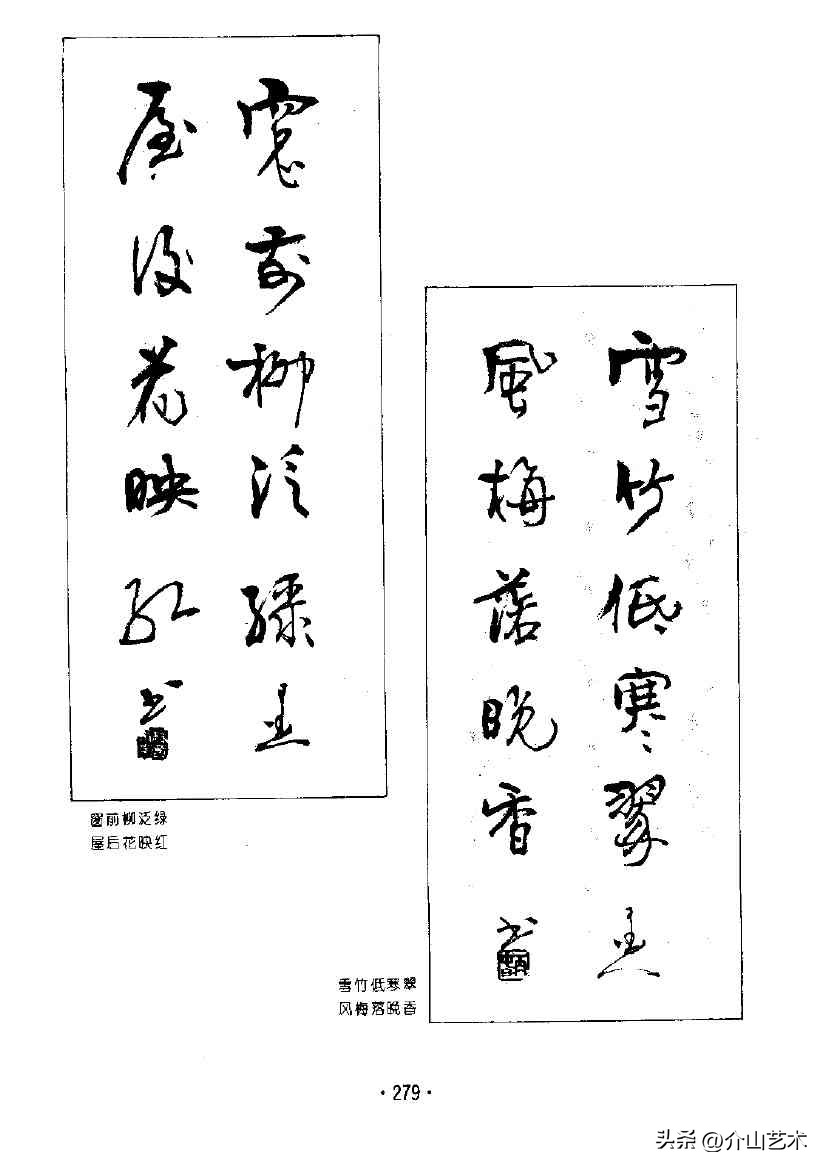 窗前柳泛綠
屋後花映紅
书
窗前柳泛绿
屋后花映红
雪竹低寒翠
風梅落晚香
书
雪竹低寒翠
风梅落晚香
·279·
头条 @介山艺术